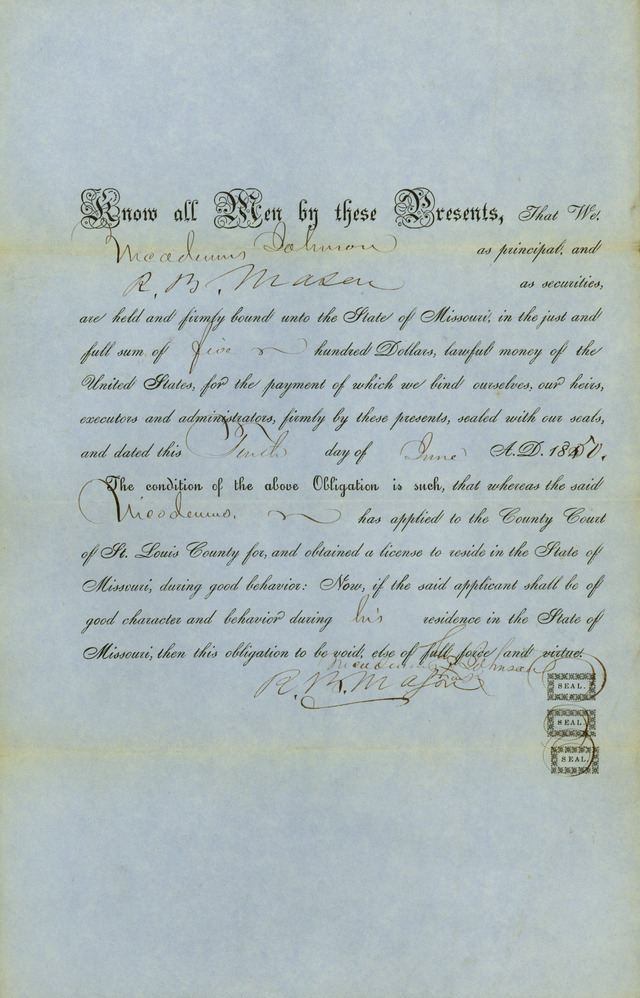 Know all Men by these Presents, That We,
Nicodemus Johnson as principal, and
R. B. Mason as securities,
are held and firmly bound unto the State of Missouri, in the just and
full sum of five hundred Dollars, lawful money of the
United States, for the payment of which we bind ourselves, our heirs,
executors and administrators, firmly by these presents, sealed with our seals,
and dated this Tenth day of June A. D. 1850.
The condition of the above Obligation is such, that whereas the said
Nicodemus has applied to the County Court
of St. Louis County for, and obtained a license to reside in the State of
Missouri, during good behavior: Now, if the said applicant shall be of
good character and behavior during his residence in the State of
Missouri, then this obligation to be void, else of full force and virtue.
Nicodemus Johnson
SEAL.
R. B. Mason
SEAL.
SEAL.